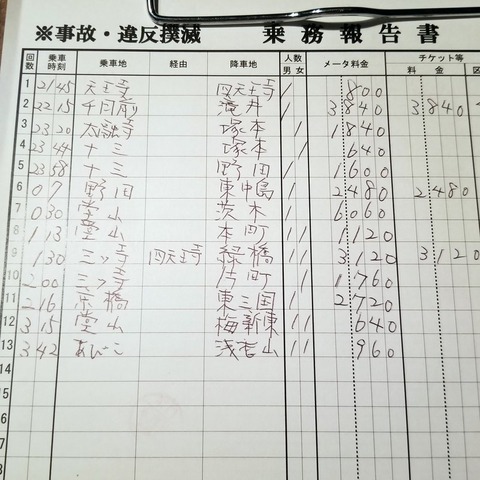 ※事故・違反撲滅 乗務報告書
回数 乗車時刻 乗車地 経由 降車地 人数 男 女 メータ料金 チケット等 料金 区
1 21 45 天王寺 四天王寺 1 800
2 22 15 千日前 滝井 1 3840 3840
3 23 20 太融寺 塚本 1 1840
4 23 44 十三 塚本 1 640
5 23 58 十三 野田 1 1600
6 0 7 野田 東中島 1 2480 2480
7 0 30 堂山 茨木 1 6060
8 1 13 堂山 本町 1 1 1120
9 1 30 三ッ寺 四天王寺 緑橋 1 1 3120 3120
10 2 00 三ッ寺 片町 1 1760
11 2 16 京橋 東三国 1 2720
12 3 15 堂山 梅新東 1 1 640
13 3 42 あびこ 浅香山 1 1 960
14
15
16
17